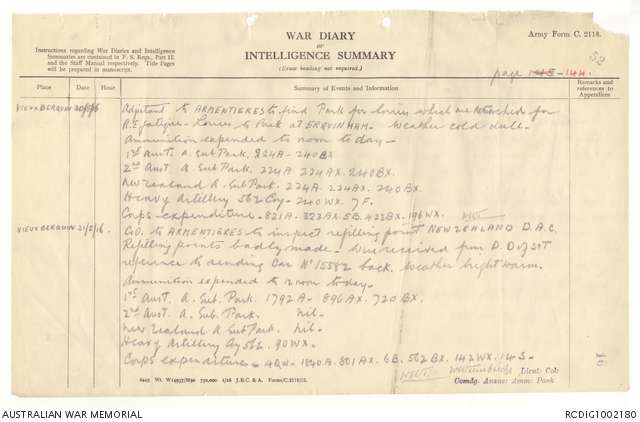 Army Form C. 2118.
WAR DIARY
or
INTELLIGENCE SUMMARY
(Erase heading not required.)
Instructions regarding War Diaries and Intelligence
Summaries are contained in F. S. Regs., Part II.
and the Staff Manual respectively. Title Pages
will be prepared in manuscript.
page 144.
Place Date Hour Summary of Events and Information Remarks and references to Appendices
VIEUX BERQUIN 20/5/16 Adjutant to ARMENTIERES to find Park for lorries which are attached for
R.E fatigue. Lorries to Park at ERQUINHAM. Weather cold dull.
Ammunition expended to noon to day -
1st Aust. A. Sub Park. 224A - 240BX
2nd Aust A. Sub Park. 224A. 224AX. 240BX.
New Zealand A. Sub Park. 224A. 224AX. 240BX.
Heavy Artillery 562 Coy - 240WX. 7F.
Corps expenditure - 821A. 323AX. 5B. 423BX. 196WX.
VIEUX BERQUIN 21/5/16. C.O. to ARMENTIERES to inspect refilling point NEW ZEALAND D.A.C.
Refilling points badly made - Wire received from D.D of S&T
reference to sending Car No 15582 back. Weather bright warm.
Ammunition expended to 12 noon today -
1st Aust. A. Sub. Park. 1792A - 896AX. 720BX.
2nd Aust. A. Sub. Park. nil -
New Zealand A Sub Park. nil -
Heavy Artillery Coy 562. 90WX.
Corps expenditure - 4QW - 1840A. 801AX. 6B. 562BX. 142WX. 14S -
Lieut: Col:
Comdg. Anzac: Amm: Park
2449 Wt. W14957/M90 750,000 1/16 J.B.C. & A. Forms/C.2118/12.
AUSTRALIAN WAR MEMORIAL
RCDIG1002180